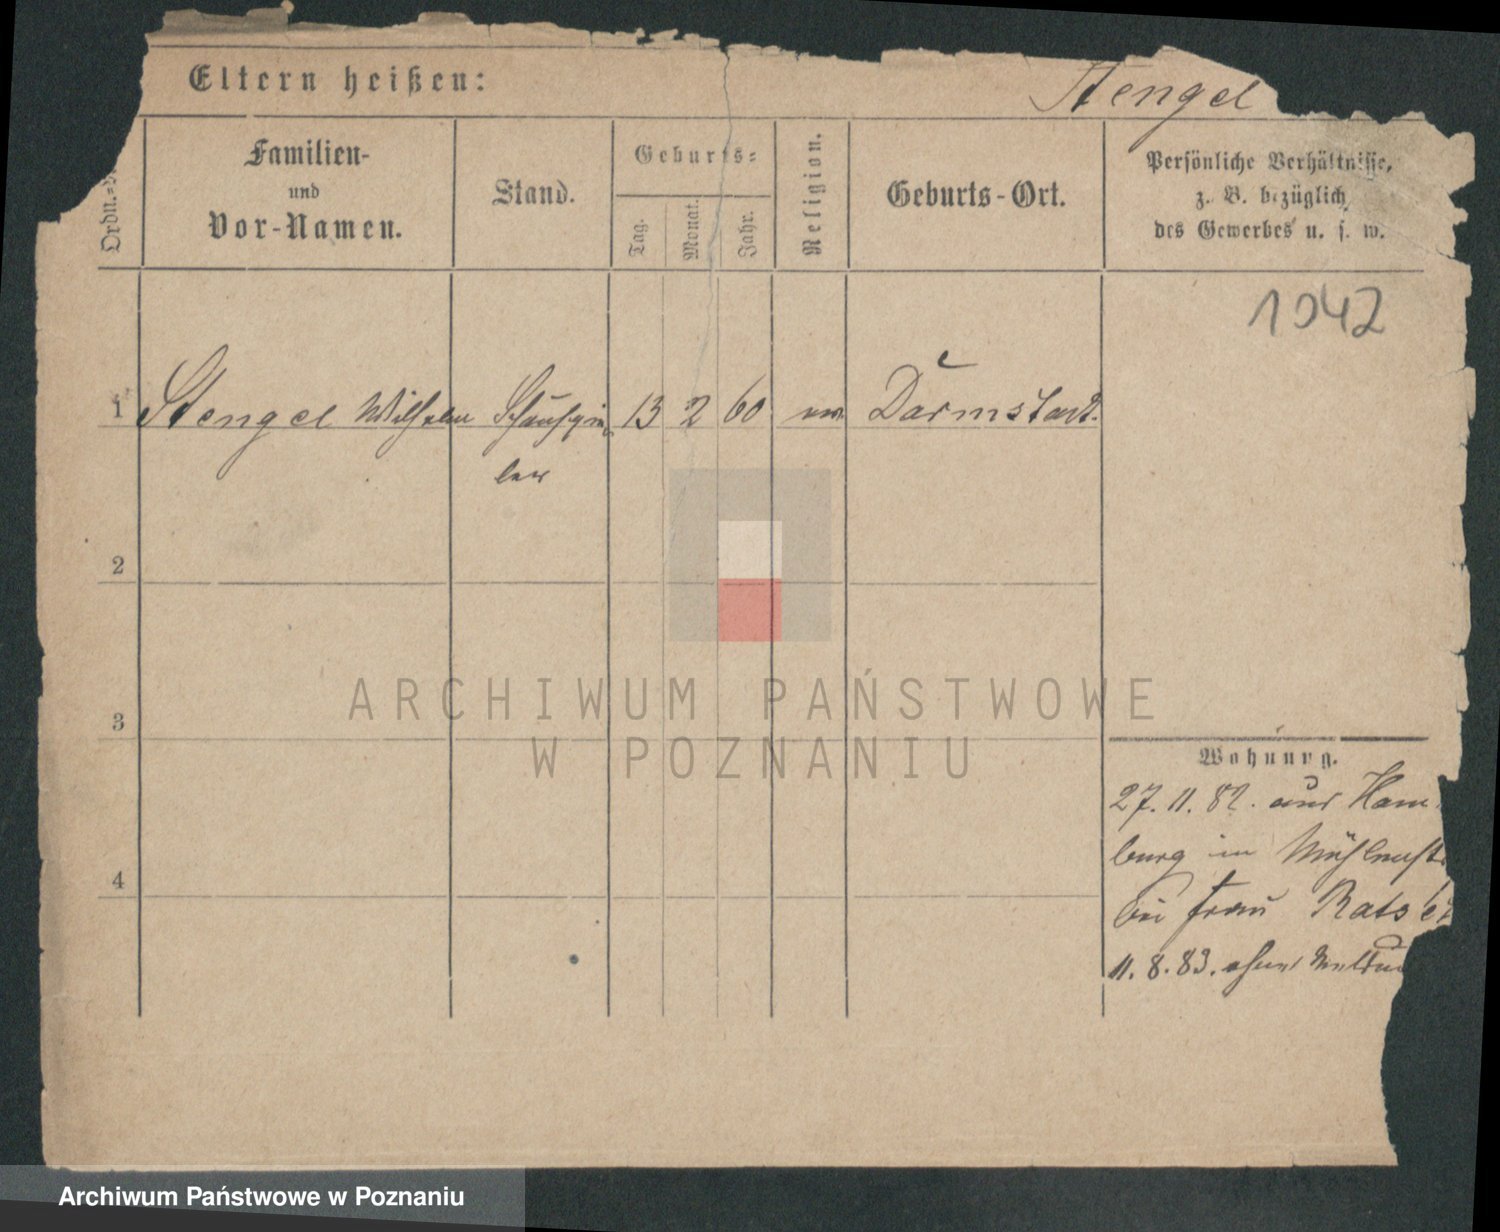 Eltern heißen:
Stengel
Ordn.-
Familien-
und
Vor-Namen.
Stand.
Geburts-
Tag.
Monat.
Jahr.
Religion.
Geburts-Ort.
Persönliche Verhältnisse,
z. B. bezüglich
des Gewerbes u. s. w.
1042
1 Stengel Wilhelm Schauspie 13 2 60 ev. Darmstadt.
ler
2
3
4
ARCHIWUM PAŃSTWOWE
W POZNANIU
Wohnung.
27. 11. 82. aus Ham
burg in Mühlenst
bei Frau
11. 8. 83. ohne Meldu
Archiwum Państwowe w Poznaniu